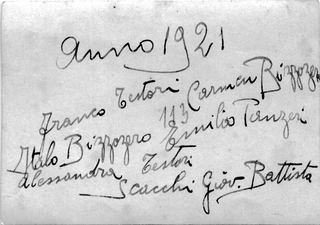 Anno 1921
Franco Testori Carmen Bizzozero
Italo Bizzozero 113 Emilio Panzeri
Alessandra Testori
Scacchi Giov. Battista